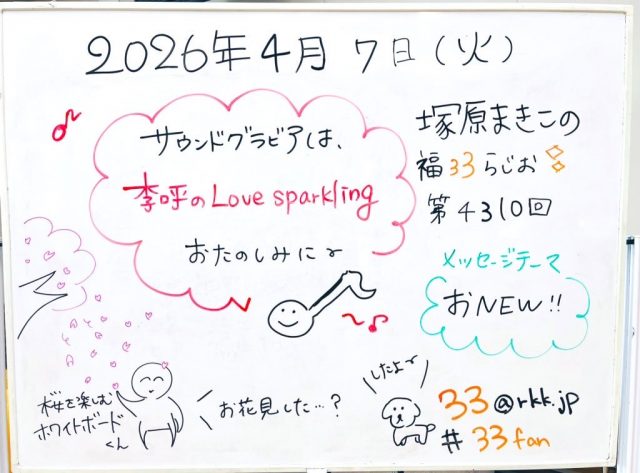 2026年4月7日(火)
サウンドグラビアは、
李呼のLove sparkling
おたのしみに〜
塚原まきこの
福33らじお
第4310回
メッセージテーマ
おNEW!!
桜を楽しむ
ホワイトボード
くん
お花見した…?
したよ〜
33@rkk.jp
#33fan